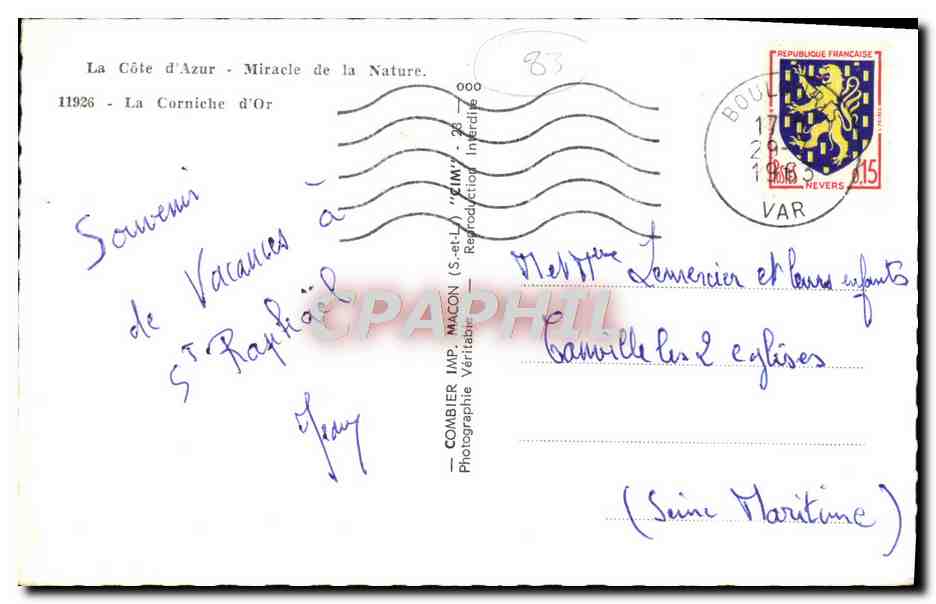 La Côte d'Azur - Miracle de la Nature.
11926 - La Corniche d'Or
83
Souvenir
de Vacances à
St Raphaël
— COMBIER IMP. MACON (S.-et-L.) "CIM" - 28 — 000
Photographie Véritable — Reproduction Interdite
REPUBLIQUE FRANÇAISE
POSTES 0,15
NEVERS
17
29-
1963
VAR
M et Mme Lemercier et leurs enfants
Canville les 2 eglises
(Seine Maritime)
CPAPHIL